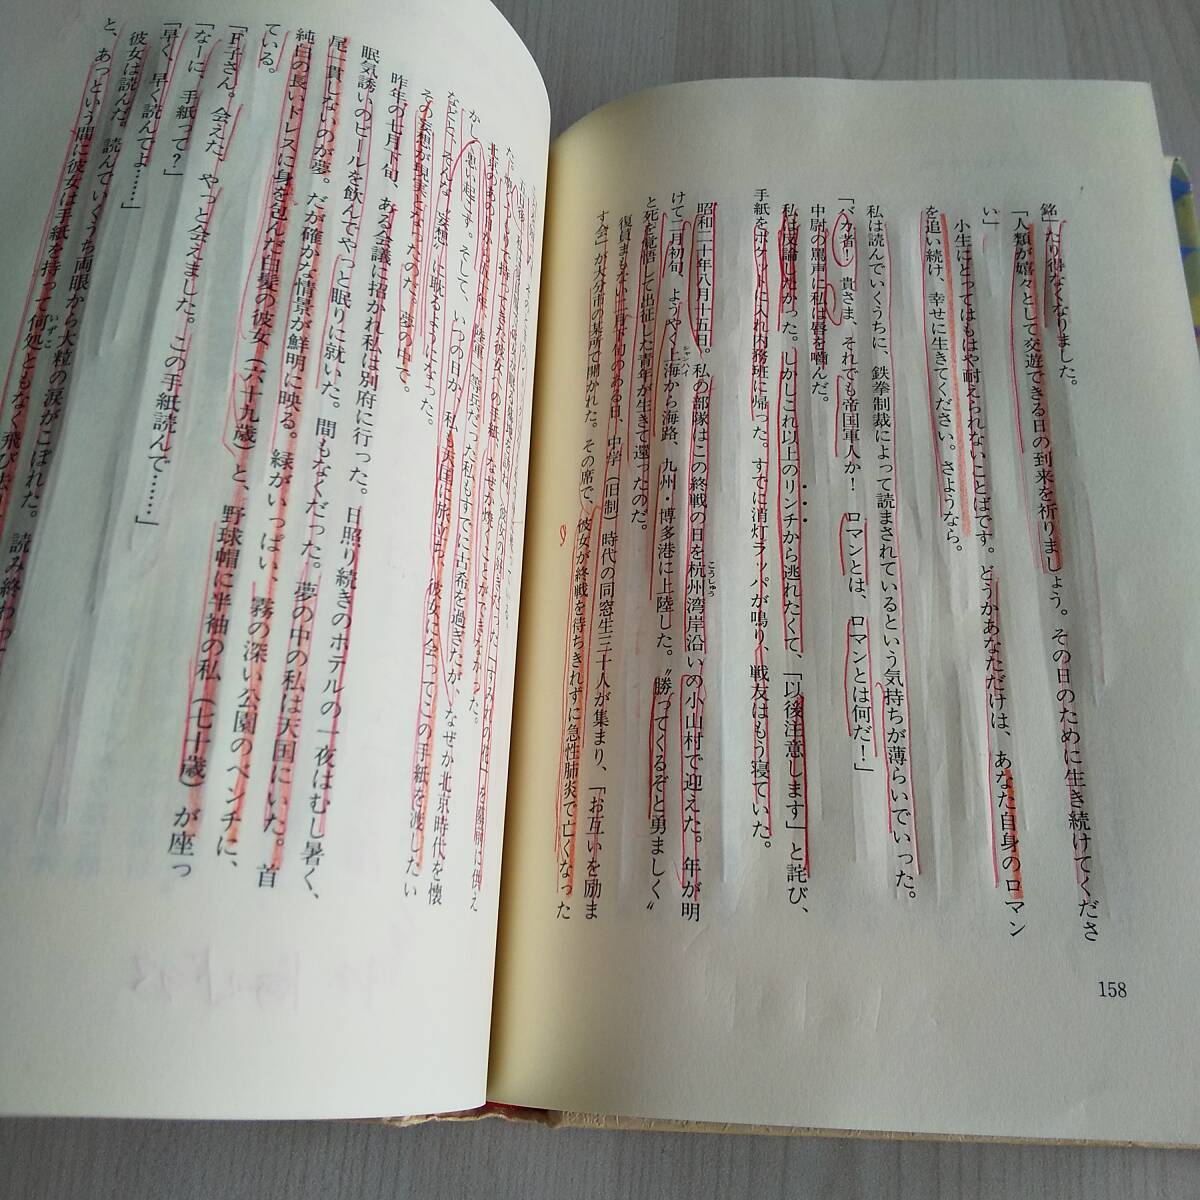 銘たり得なくなりました。
「人類が嬉々として交遊できる日の到来を祈りましょう。その日のために生き続けてくださ
い」
小生にとってはもはや耐えられないことばです。どうかあなただけは、あなた自身のロマン
を追い続け、幸せに生きてください。さようなら。
私は読んでいくうちに、鉄拳制裁によって読まされているという気持ちが薄らいでいった。
「バカ者！ 貴さま、それでも帝国軍人か！ ロマンとは、ロマンとは何だ！」
中尉の罵声に私は唇を噛んだ。
私は反論したかった。しかしこれ以上のリンチから逃れたくて、「以後注意します」と詫び、
手紙をポケットに入れ内務班に帰った。すでに消灯ラッパが鳴り、戦友はもう寝ていた。
昭和二十年八月十五日。私の部隊はこの終戦の日を杭州湾岸沿いの小山村で迎えた。年が明
けて二月初旬、ようやく上海から海路、九州・博多港に上陸した。〝勝ってくるぞと勇ましく〟
と死を覚悟して出征した青年が生きて還ったのだ。
復員まもない二月下旬のある日、中学（旧制）時代の同窓生三十人が集まり、「お互いを励ま
す会」が大分市の某所で開かれた。その席で、彼女が終戦を待ちきれずに急性肺炎で亡くなった
158
かしく思い起こす。そして、いつの日か、私も天国に旅立ち、彼女に会ってこの手紙を渡したい
などと、そんな〝妄想〟に耽るようになった。
その妄想が現実となったのだ。夢の中で。
昨年の七月下旬、ある会議に招かれ私は別府に行った。日照り続きのホテルの一夜はむし暑く、
眠気誘いのビールを飲んでやっと眠りに就いた。間もなくだった。夢の中の私は天国にいた。首
尾一貫しないのが夢。だが確かな情景が鮮明に映る。緑がいっぱい、霧の深い公園のベンチに、
純白の長いドレスに身を包んだ白髪の彼女（六十九歳）と、野球帽に半袖の私（七十歳）が座っ
ている。
「F子さん。会えた、やっと会えました。この手紙読んで……」
「なーに、手紙って？」
「早く、早く読んでよ……」
彼女は読んだ。読んでいくうち両眼から大粒の涙がこぼれた。読み終わっ
と、あっという間に彼女は手紙を持って何処ともなく飛び